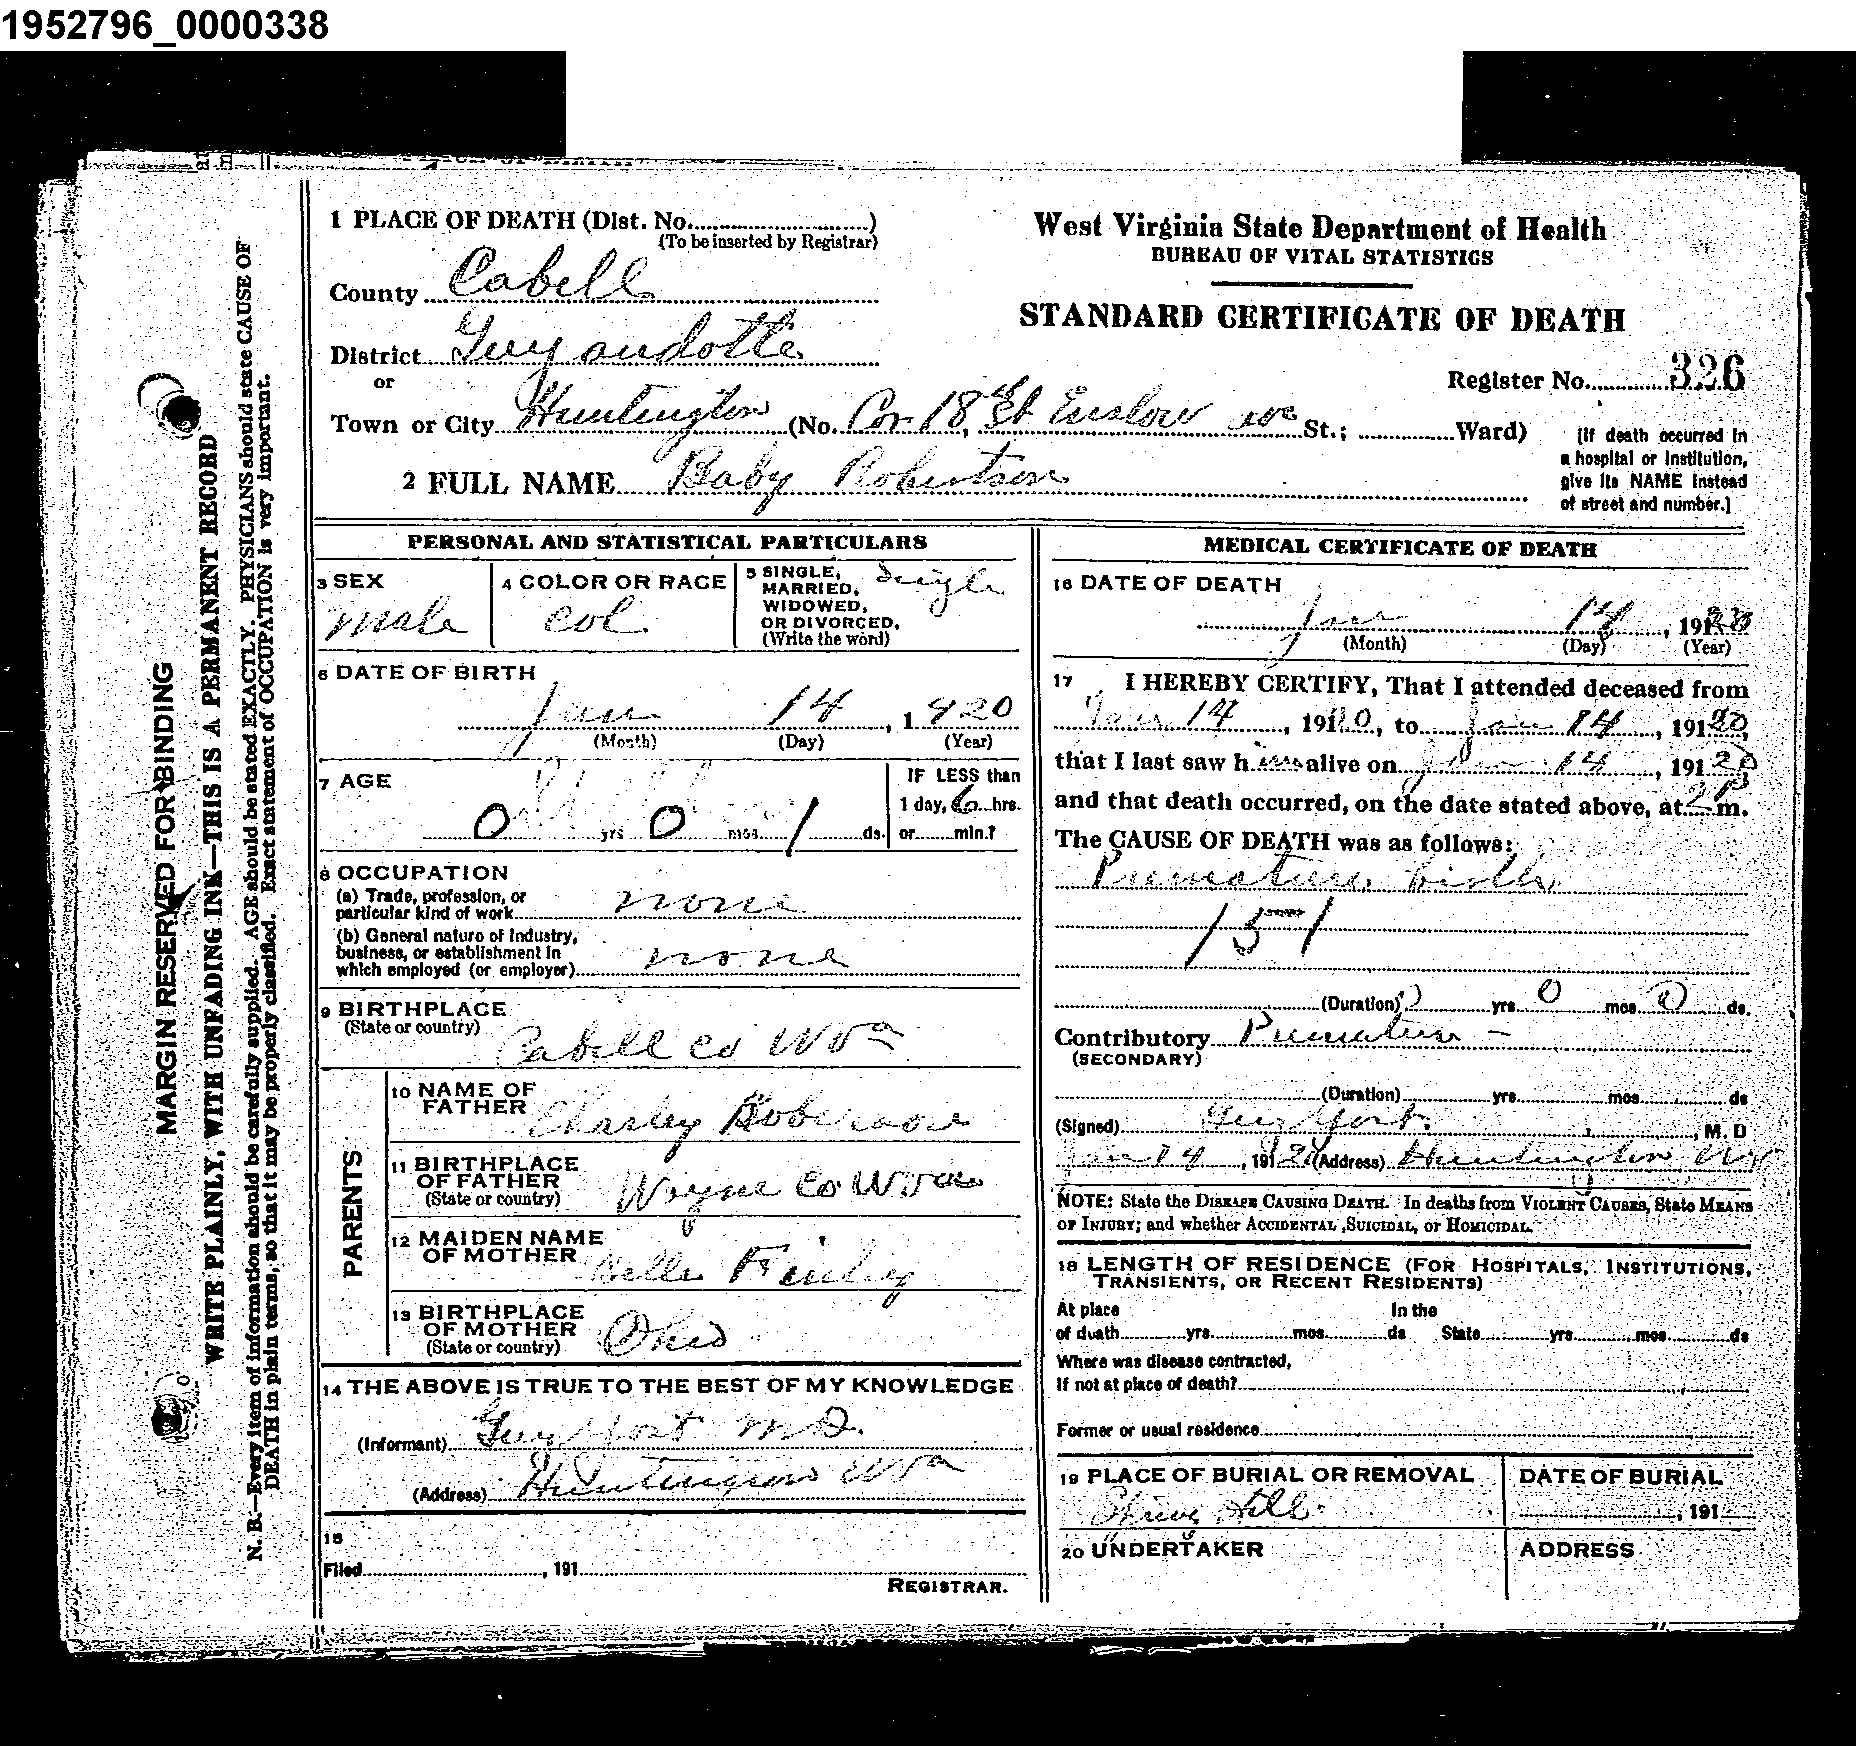 1952796_0000338
1 PLACE OF DEATH (Dist. No. )
(To be inserted by Registrar)
County Cabell
District Guyandotte
or
Town or City Huntington (No. Cor 18 St Enslow ave St.; Ward)
2 FULL NAME Baby Robertson
West Virginia State Department of Health
BUREAU OF VITAL STATISTICS
STANDARD CERTIFICATE OF DEATH
Register No. 326
(If death occurred in
a hospital or institution,
give its NAME instead
of street and number.]
PERSONAL AND STATISTICAL PARTICULARS
3 SEX
male
4 COLOR OR RACE
Col
5 SINGLE,
MARRIED,
WIDOWED,
OR DIVORCED.
(Write the word)
Single
6 DATE OF BIRTH
Jan 14, 1920
(Month) (Day) (Year)
7 AGE
0 yrs 0 mos 1 ds.
IF LESS than
1 day, 6 hrs.
or min.?
8 OCCUPATION
(a) Trade, profession, or
particular kind of work none
(b) General nature of industry,
business, or establishment in
which employed (or employer) none
9 BIRTHPLACE
(State or country)
Cabell Co WVa
PARENTS
10 NAME OF
FATHER Charley
11 BIRTHPLACE
OF FATHER
(State or country)
Wayne Co WVa
12 MAIDEN NAME
OF MOTHER Belle Finley
13 BIRTHPLACE
OF MOTHER
(State or country)
Ohio
14 THE ABOVE IS TRUE TO THE BEST OF MY KNOWLEDGE
(Informant) Guy Yost M.D.
(Address) Huntington WVa
15
Filed , 191
REGISTRAR.
MEDICAL CERTIFICATE OF DEATH
16 DATE OF DEATH
Jan 14, 1920
(Month) (Day) (Year)
17 I HEREBY CERTIFY, That I attended deceased from
Jan 14, 1920, to Jan 14, 19120,
that I last saw him alive on Jan 14, 19120
and that death occurred, on the date stated above, at 2 P. m.
The CAUSE OF DEATH was as follows:
Premature birth
151
(Duration) 0 yrs 0 mos 0 ds.
Contributory Premature -
(SECONDARY)
(Duration) yrs. mos. ds
(Signed) Guy Yost, M. D
Jan 14, 1920 (Address) Huntington WV
NOTE: State the DISEASE CAUSING DEATH. In deaths from VIOLENT CAUSES, State MEANS
OF INJURY; and whether ACCIDENTAL, SUICIDAL, OR HOMICIDAL.
18 LENGTH OF RESIDENCE (FOR HOSPITALS, INSTITUTIONS,
TRANSIENTS, OR RECENT RESIDENTS)
At place In the
of death yrs. mos. ds State yrs. mos. ds
Where was disease contracted,
If not at place of death?
Former or usual residence
19 PLACE OF BURIAL OR REMOVAL
Spring Hill
DATE OF BURIAL
, 191
20 UNDERTAKER
ADDRESS
MARGIN RESERVED FOR BINDING
WRITE PLAINLY, WITH UNFADING INK—THIS IS A PERMANENT RECORD
N. B.—Every item of information should be carefully supplied. AGE should be stated EXACTLY. PHYSICIANS should state CAUSE OF
DEATH in plain terms, so that it may be properly classified. Exact statement of OCCUPATION is very important.